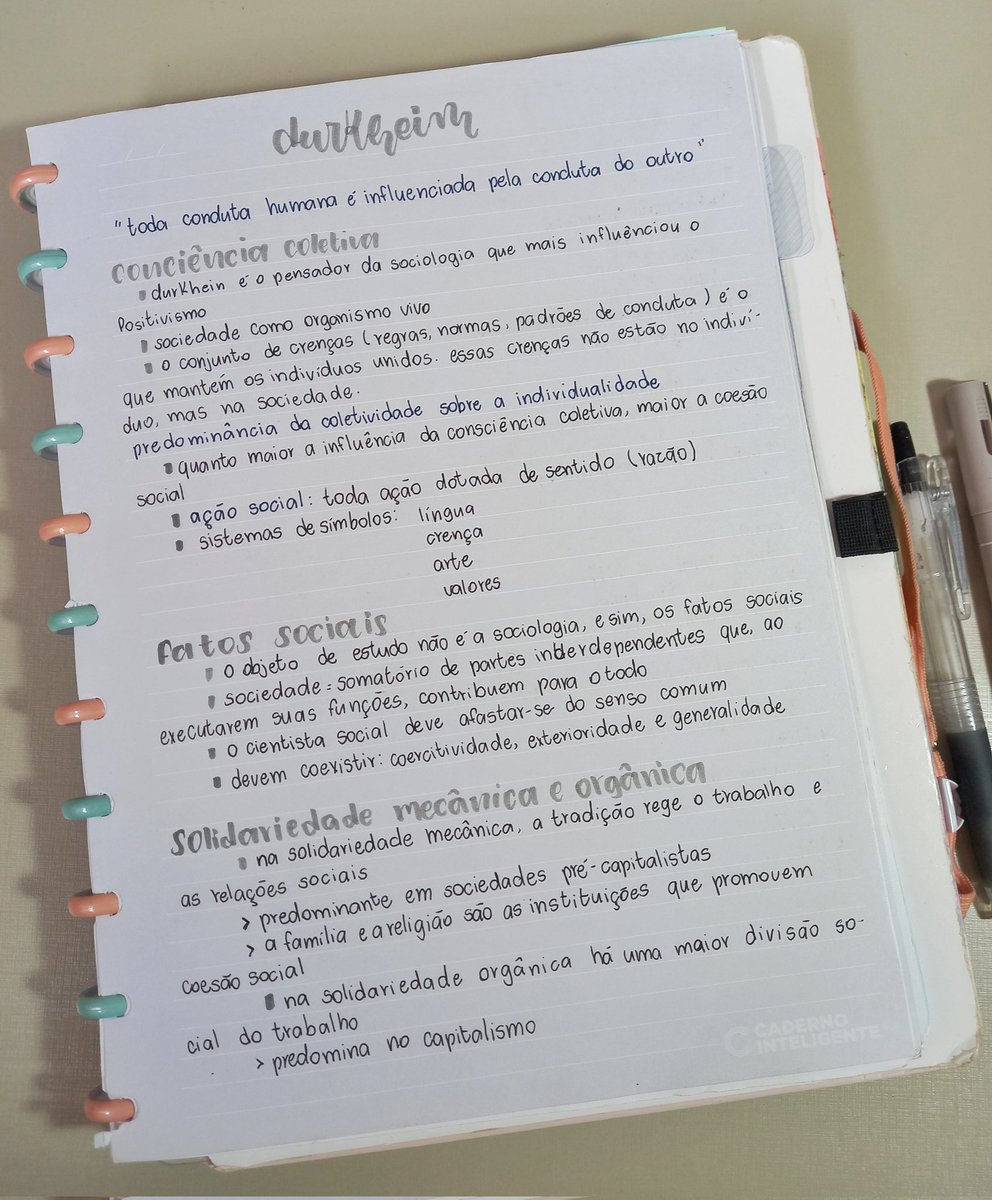 durkheim
"toda conduta humana é influenciada pela conduta do outro"
conciência coletiva
durkhein é o pensador da sociologia que mais influênciou o
Positivismo
sociedade como organismo vivo
o conjunto de crenças (regras, normas, padrões de conduta) é o
que mantém os indivíduos unidos. essas crenças não estão no indiví-
duo, mas na sociedade.
predominância da coletividade sobre a individualidade
quanto maior a influência da consciência coletiva, maior a coesão
social
ação social: toda ação dotada de sentido (razão)
sistemas de símbolos: língua
crença
arte
valores
fatos sociais
o objeto de estudo não é a sociologia, e sim, os fatos sociais
sociedade = somatório de partes interdependentes que, ao
executarem suas funções, contribuem para o todo
o cientista social deve afastar-se do senso comum
devem coexistir: coercitividade, exterioridade e generalidade
solidariedade mecânica e orgânica
na solidariedade mecânica, a tradição rege o trabalho e
as relações sociais
> predominante em sociedades pré-capitalistas
> a família e a religião são as instituições que promovem
coesão social
na solidariedade orgânica há uma maior divisão so-
cial do trabalho
> predomina no capitalismo
CADERNO
INTELIGENTE